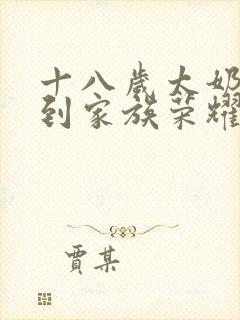 十八歲太奶
到家族榮耀
賈某